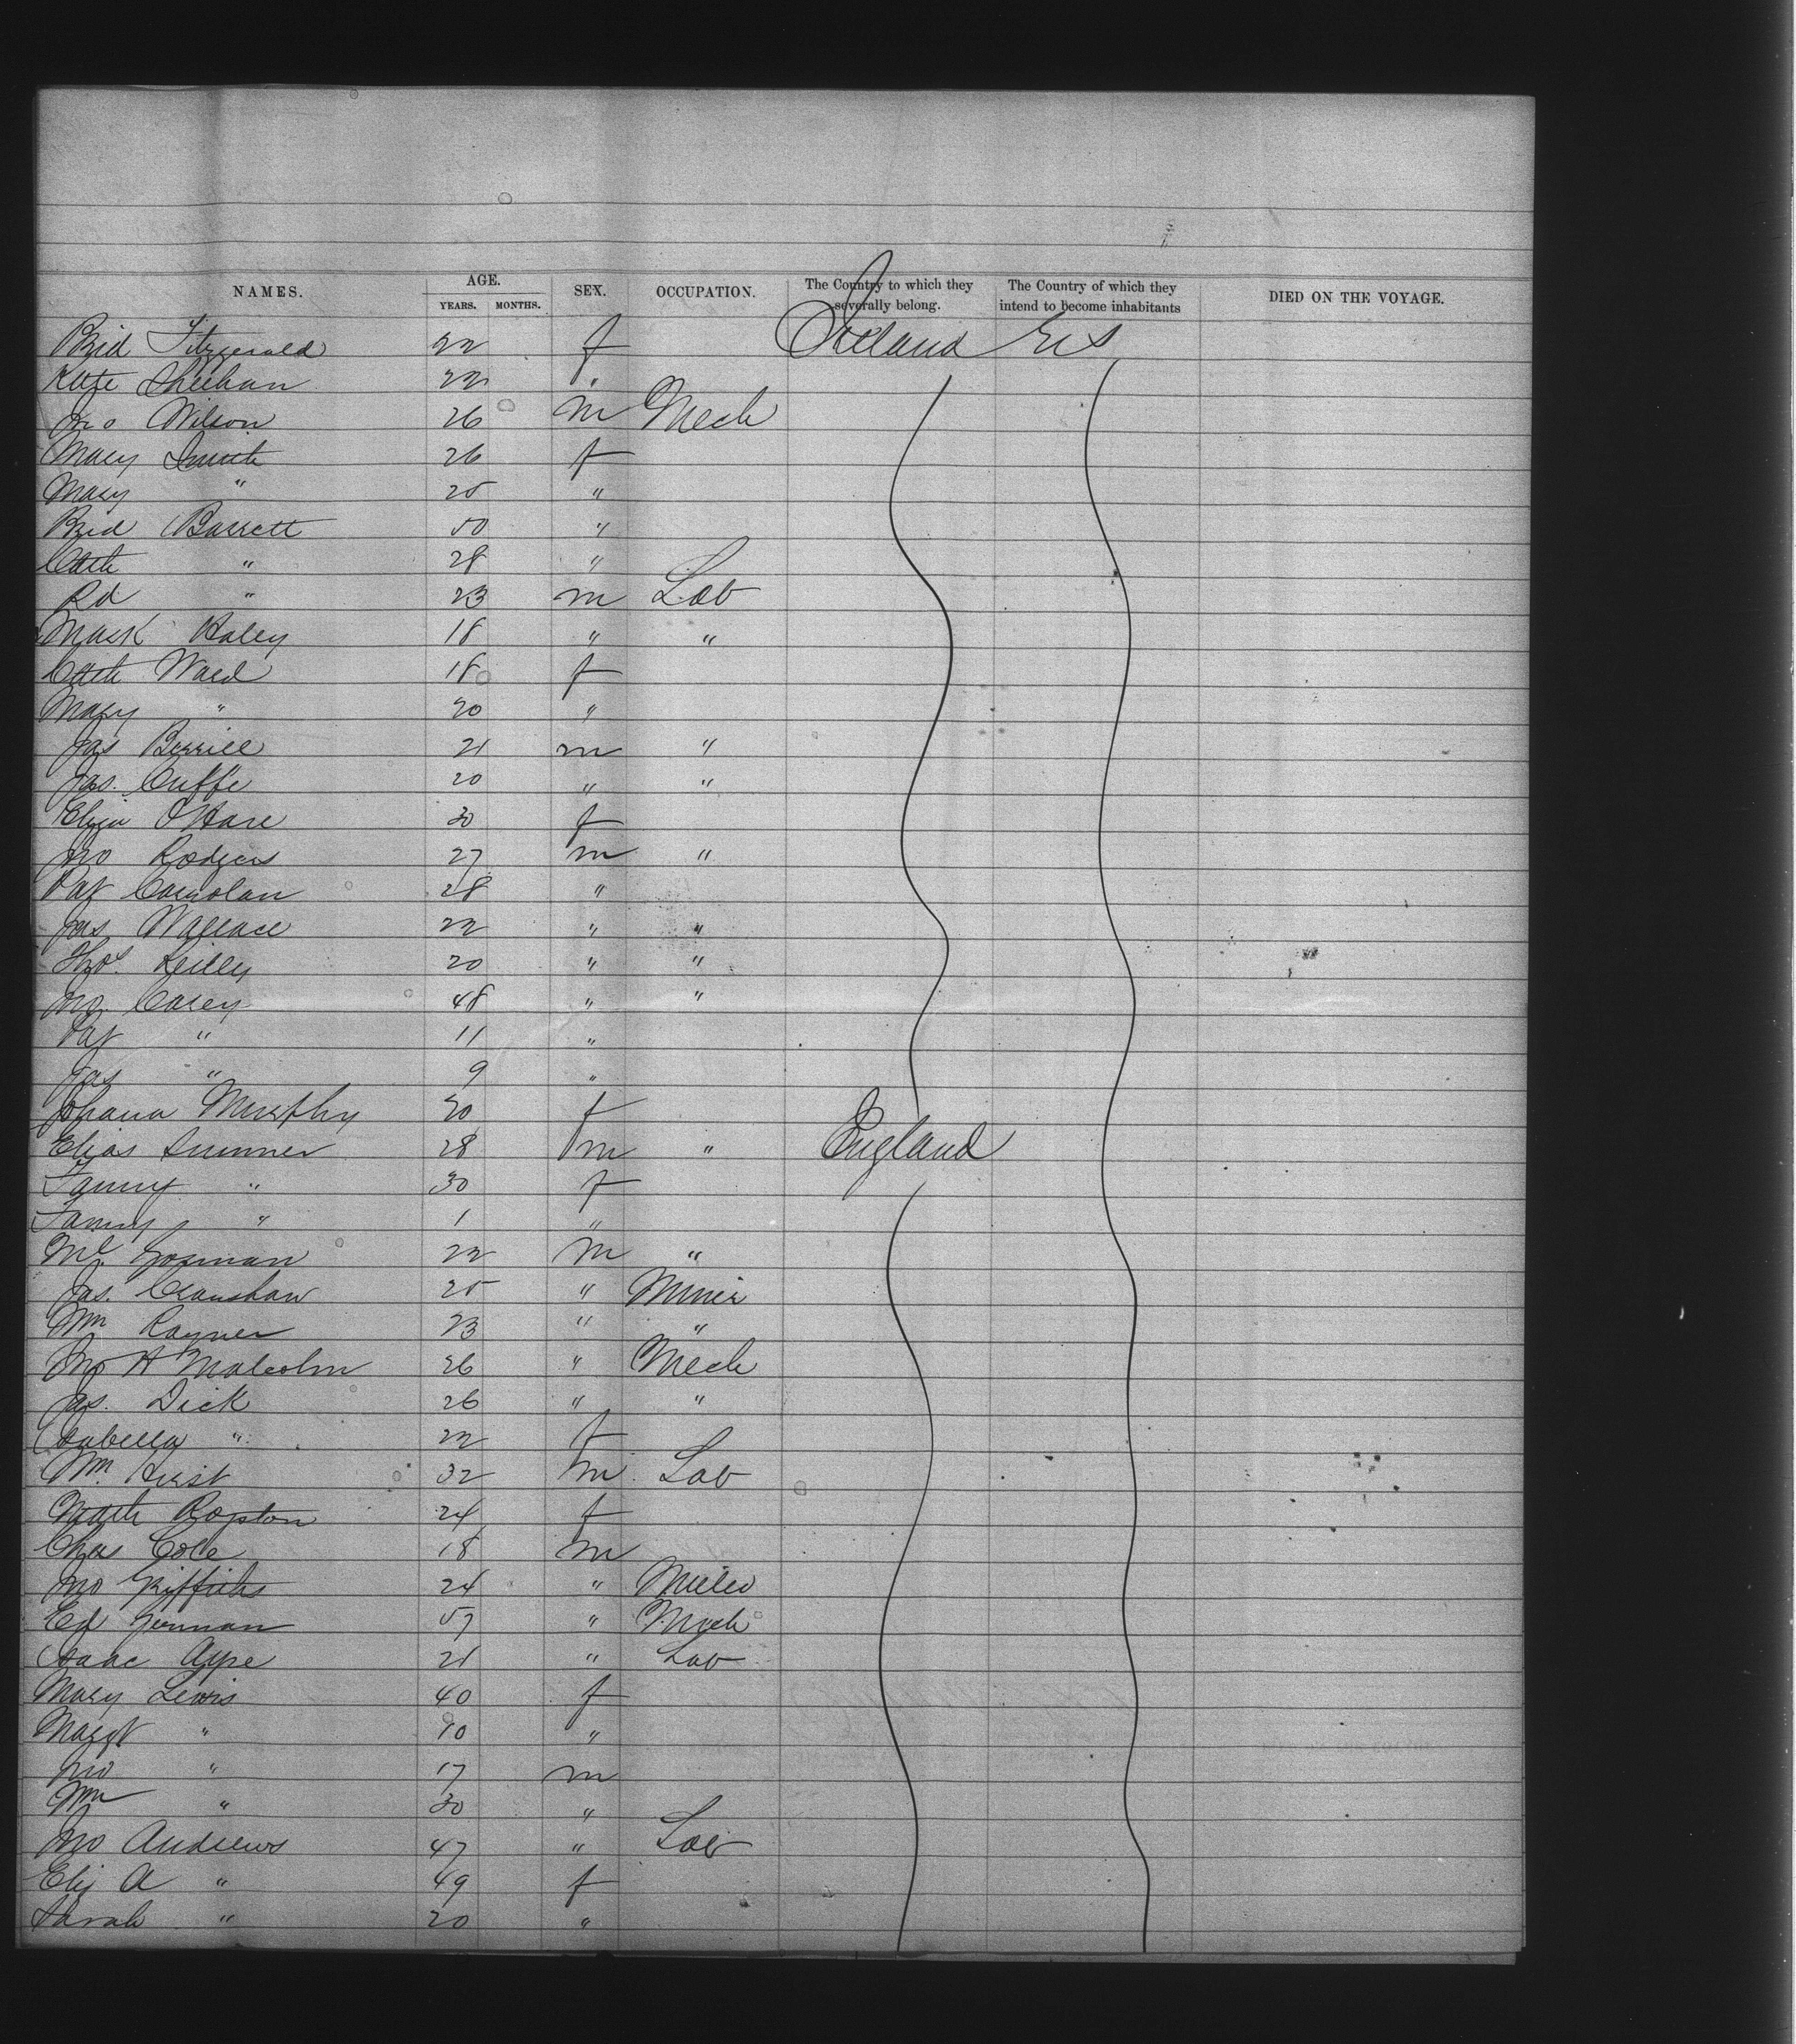 NAMES. AGE. SEX. OCCUPATION. The Country to which they severally belong. The Country of which they intend to become inhabitants DIED ON THE VOYAGE.
YEARS. MONTHS.
Brid Fitzgerald 22 f Ireland U S
Kate Sheehan 22 "
Jno Wilson 26 m Mech
Mary Smith 26 f
Mary " 25 "
Brid Barrett 50 "
Cath " 28 "
Rd " 23 m Lab
Mark Haley 18 " "
Cath Ward 18 f
Mary " 20 "
Jas Berrill 21 m "
Jas. Cuffe 20 " "
Eliza O'Hare 30 f
Jno Rodgers 27 m "
Pat Carolan 28 "
Jas Wallace 22 " "
Thos. Reilly 20 " "
Jno. Casey 48 " "
Pat " 11 "
Jas " 9 "
Johana Murphy 20 f
Elias Sumner 28 m " England
Fanny " 30 f
Fanny " 1 "
Ml. Gorman 22 m "
Jas. Cranshaw 25 " Miner
Wm Rayner 23 " "
Jno A Malcolm 26 " Mech
Jas. Dick 26 " "
Isabella " 22 f
Wm. Hurst 32 m Lab
Math 24 f
Chas Cole 18 m
Jno Griffiths 24 "
Ed German 57 " Mech
Isaac 21 " Lab
Mary Lewis 40 f
Margt " 10 "
Jno " 17 m
Wm " 30 "
Jno Andrews 47 " Lab
Eliz A " 49 f
Sarah " 20 "